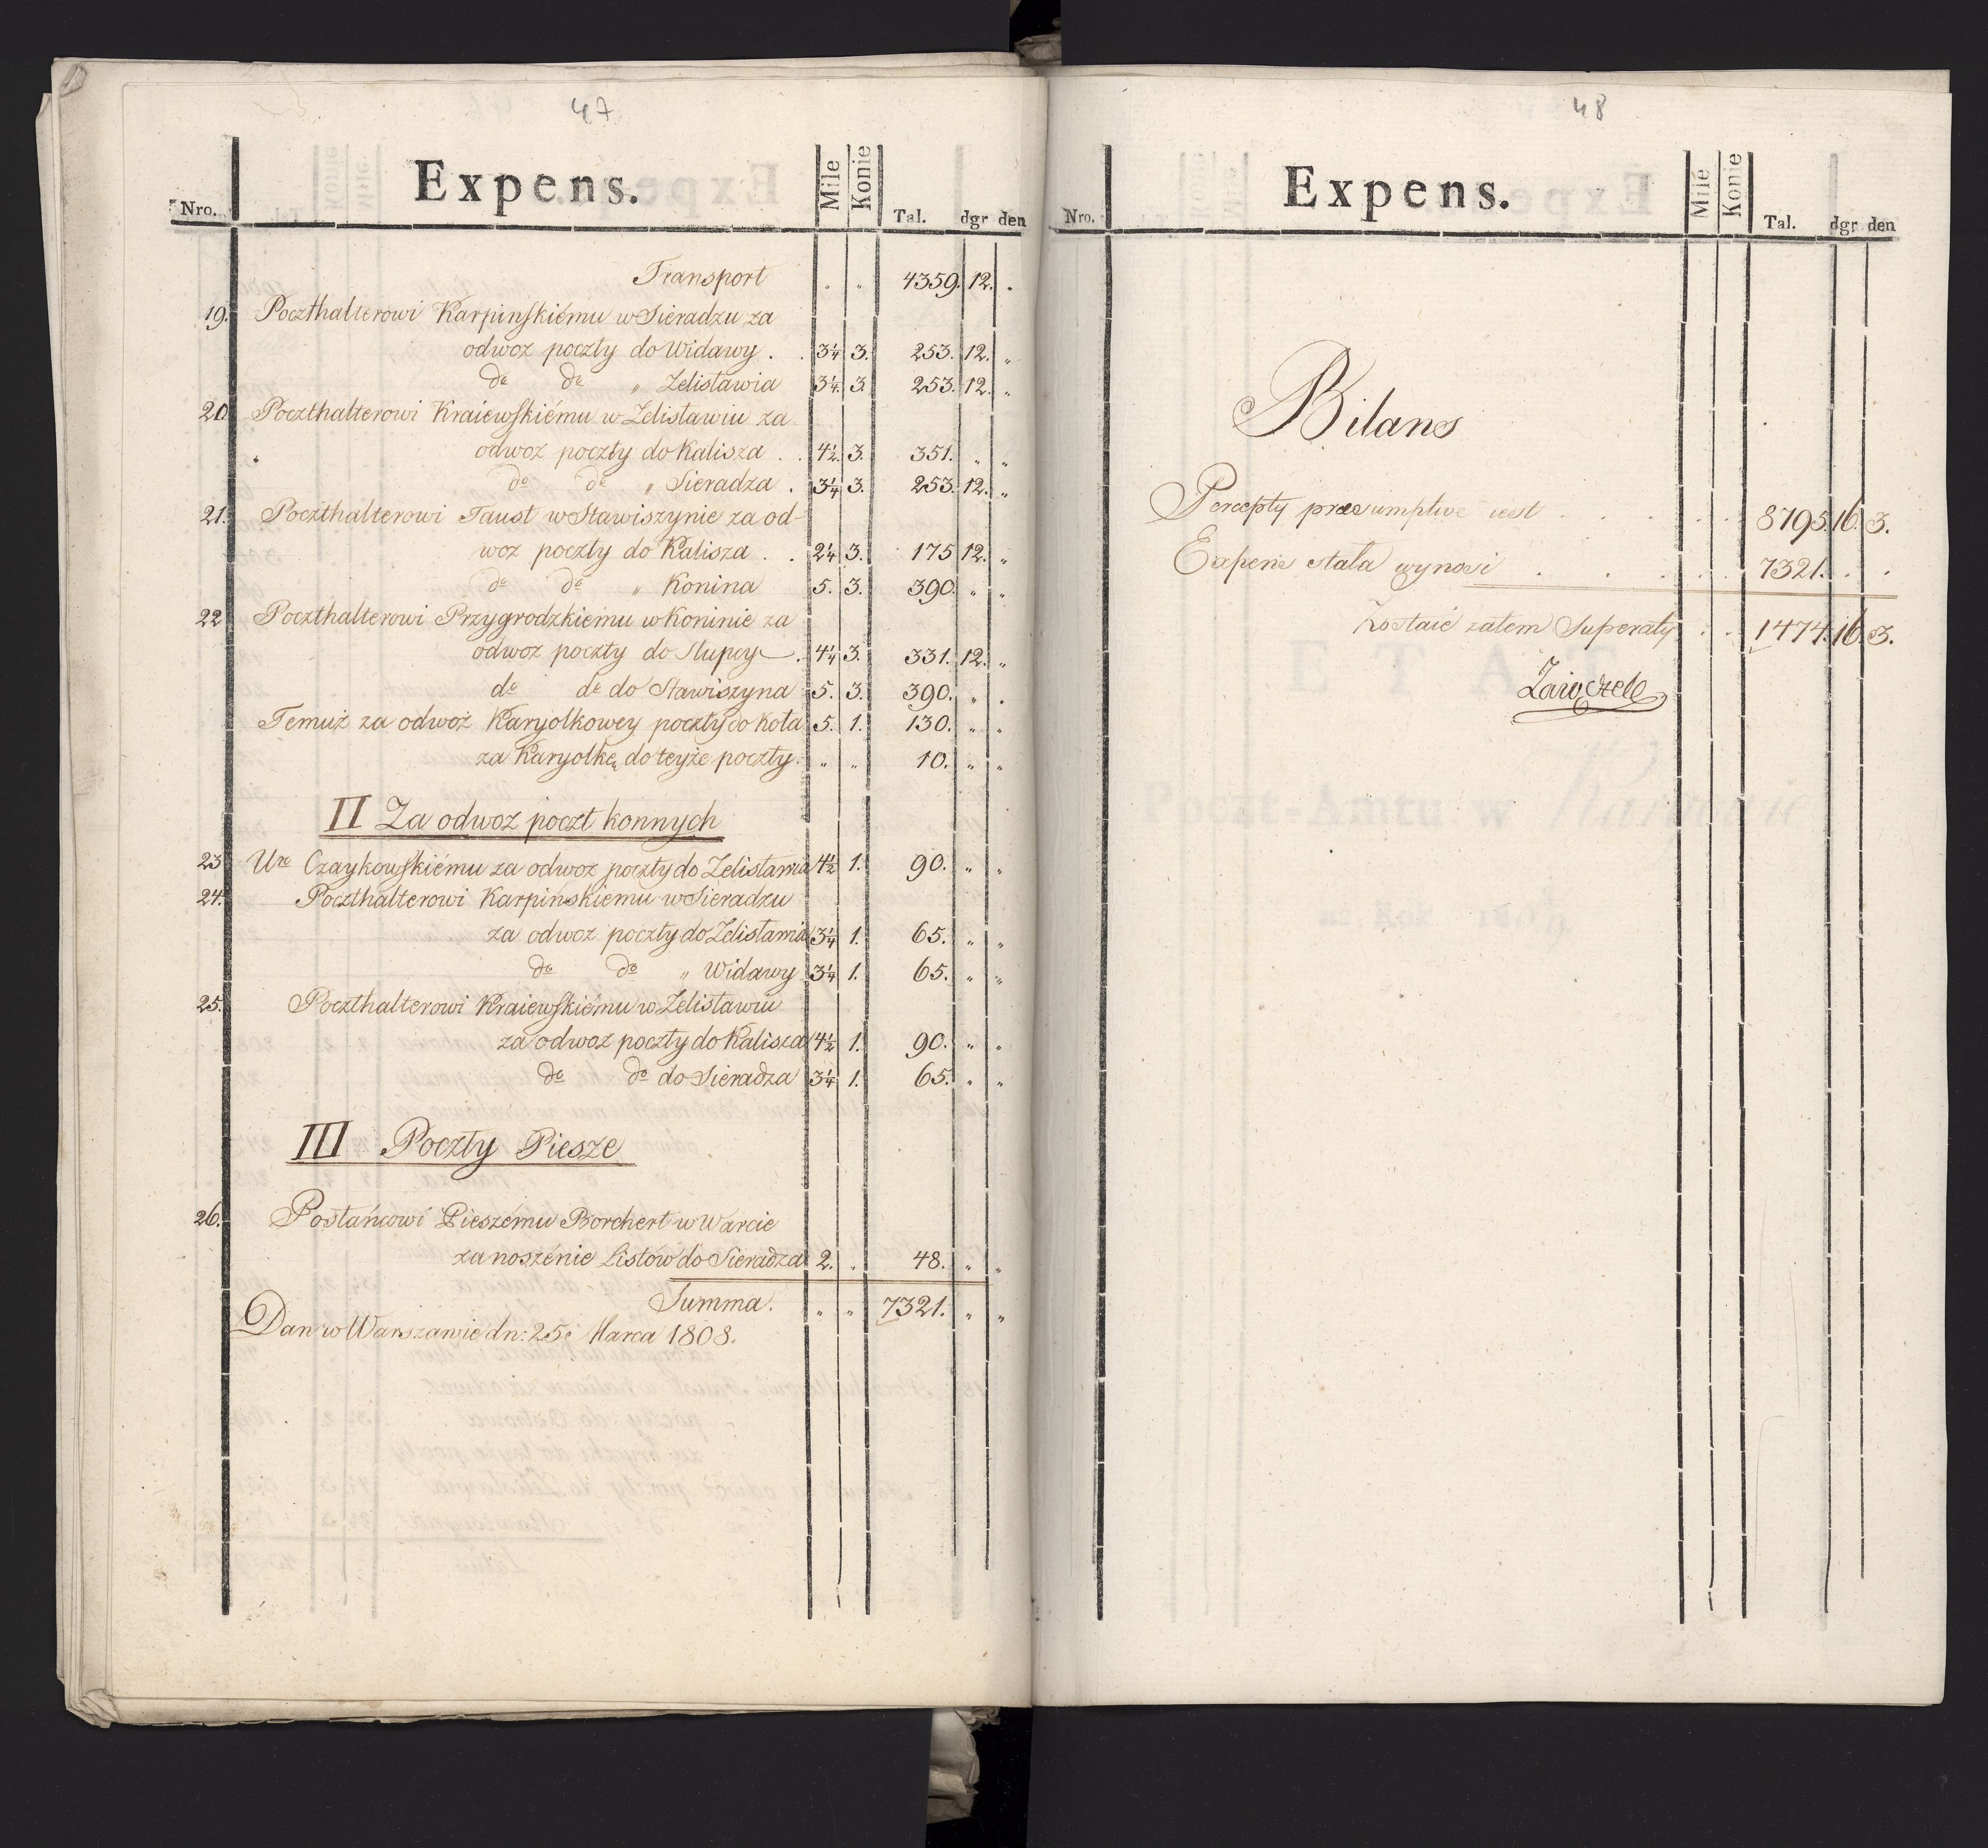 47
Nro. Expens. Mile Konie Tal. dgr den
Transport " " 4359. 12. .
19. Poczthalterowi Karpinskiému w Sieradzu za
odwoz poczty do Widawy . . 3¼ 3. 253. 12. "
do do " Zelisławia 3¼ 3. 253. 12. "
20 Poczthalterowi Kraiewskiému w Zelisławiu za
odwoz poczty do Kalisza . . 4½ 3. 351. " "
do do " Sieradza . 3¼ 3. 253. 12. "
21. Poczthalterowi Faust w Stawiszynie za od-
woz poczty do Kalisza . . 2¼ 3. 175 12. "
do do " Konina 5. 3. 390. " "
22 Poczthalterowi Przygrodzkiemu w Koninie za
odwoz poczty do Słupcy . 4¼ 3. 331. 12. "
do do do Stawiszyna 5. 3. 390. " .
Temuż za odwoz Karyolkowey poczty do Koła 5. 1. 130. " "
za Karyolkę do teyże poczty. " " 10. " "
II Za odwoz poczt konnych
23 Ur. Czaykowskiému za odwoz poczty do Zelisławia 4½ 1. 90. " "
24. Poczthalterowi Karpinskiemu w Sieradzu
za odwoz poczty do Zelisławia 3¼ 1. 65. " "
do do " Widawy 3¼ 1. 65. " "
25. Poczthalterowi Kraiewskiému w Zelisławiu
za odwoz poczty do Kalisza 4½ 1. 90. " "
do do do Sieradza 3¼ 1. 65. " "
III Poczty Piesze
26. Posłańcowi Pieszému Borchert w Warcie
za noszénie Listów do Sieradza 2. . 48. " "
Summa. " " 7321. " "
Dan w Warszawie dn: 25. Marca 1808.
48
Nro. Expens. Mile Konie Tal. dgr den
Bilans
Percepty praesumptive iest . . . . . 8795. 16. 3.
Expens stała wynosi . . . . . 7321. . .
Zostaie zatem Superaty . . 1474. 16. 3.
Zaiączek